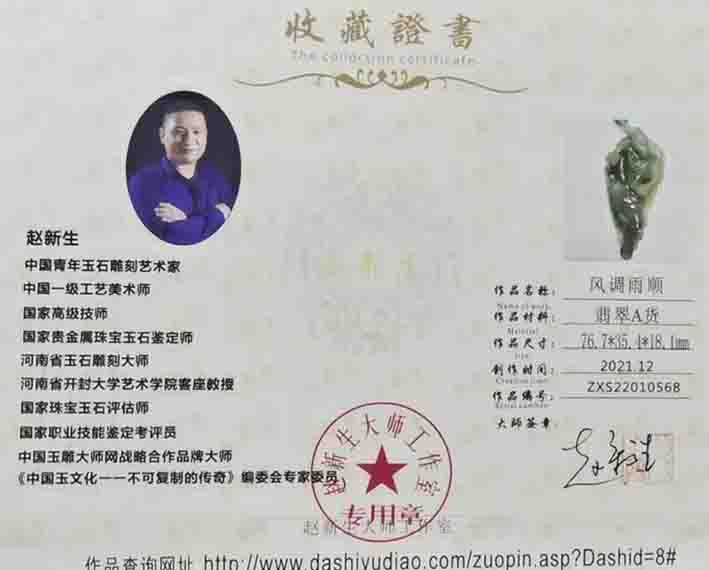 收藏證書
The collection certificate
赵新生
中国青年玉石雕刻艺术家
中国一级工艺美术师
国家高级技师
国家贵金属珠宝玉石鉴定师
河南省玉石雕刻大师
河南省开封大学艺术学院客座教授
国家珠宝玉石评估师
国家职业技能鉴定考评员
中国玉雕大师网战略合作品牌大师
《中国玉文化一一不可复制的传奇》编委会专家委员
作品名称： 风调雨顺
Name of work
作品材料： 翡翠A货
Material
作品尺寸： 76.7*35.4*18.1mm
size
创作时间： 2021.12
Creation time
作品编号： ZXS22010568
Serial number
大师签章：
赵新生
赵新生大师工作室
专用章
赵新生大师工作室
作品查询网址 http://www.dashiyudiao.com/zuopin.asp?Dashid=8#